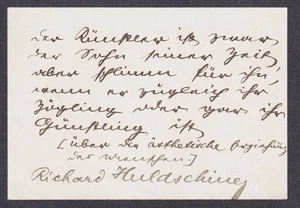 der Künstler ist zwar
der Sohn seiner Zeit
aber schlimm für ihn,
wenn er zugleich ihr
Zögling oder gar ihr
Günstling ist
[über die ästhetische Erziehung
des Menschen.]
Richard Huldschiner